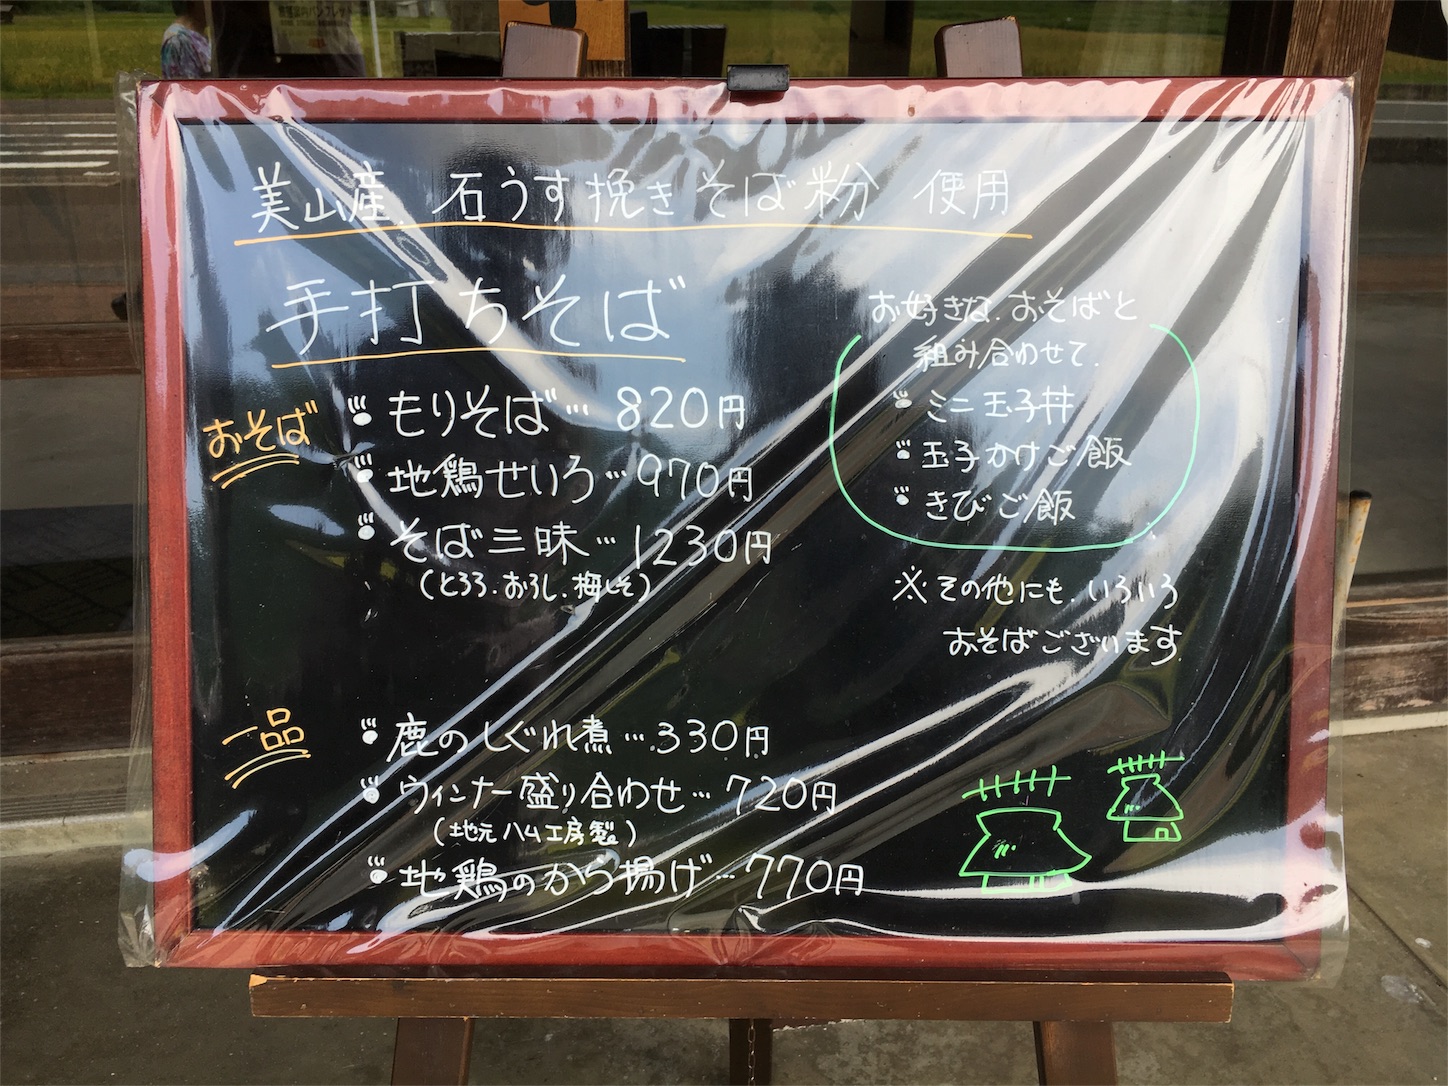 美山産 石うす挽きそば粉 使用
手打ちそば
おそば
もりそば… 820円
地鶏せいろ…970円
そば三昧…1230円
(とろろ.おろし.梅しそ)
お好きな.おそばと
組み合わせて.
ミニ玉子丼
玉子かけご飯
きびご飯
※その他にも.いろいろ
おそばございます.
一品
鹿のしぐれ煮…330円
ウィンナー盛り合わせ…720円
(地元ハム工房製)
地鶏のから揚げ…770円